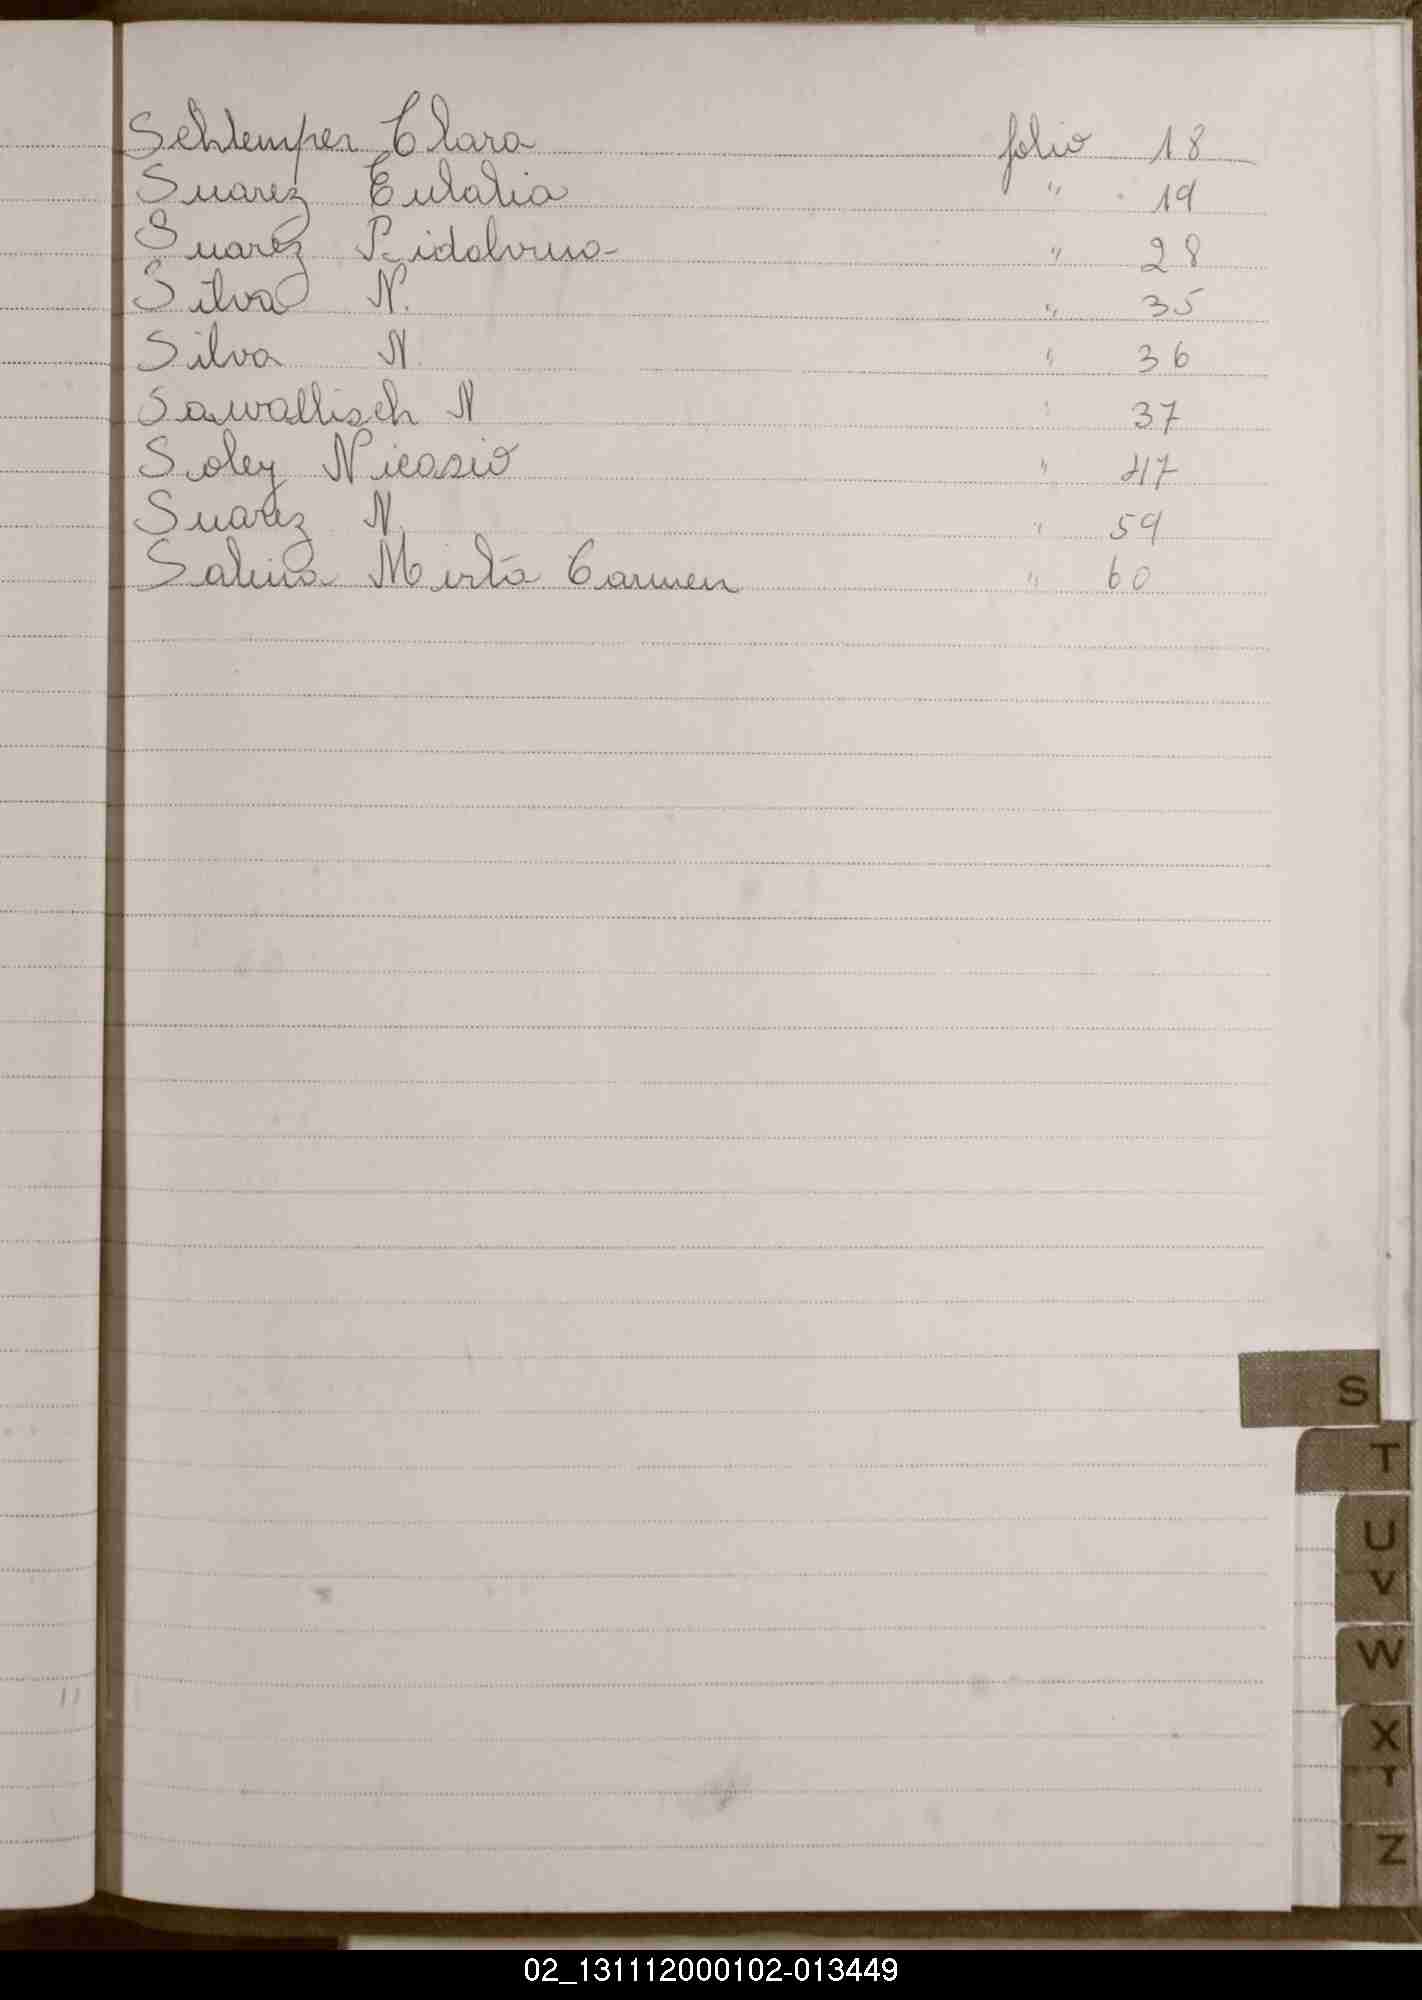 Schlemper Clara folio 18
Suarez Eulalia " 19
Suarez " 28
Silva N. " 35
Silva N. " 36
Sawallisch N " 37
Soley Nicasio " 47
Suarez N. " 59
Salina Mirta Carmen " 60
S
T
U
V
W
X
Y
Z
02_131112000102-013449